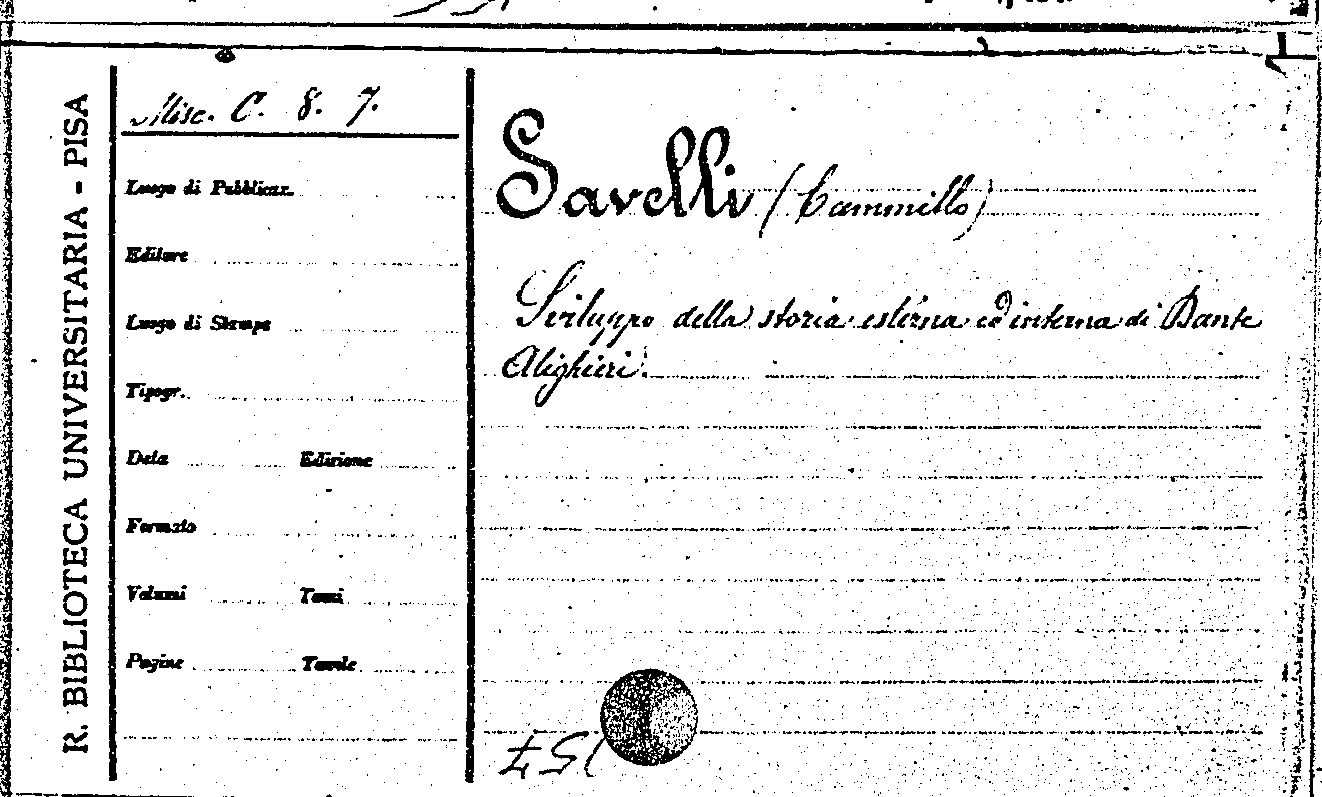 R. BIBLIOTECA UNIVERSITARIA - PISA
Misc. C. 8. 7.
Luogo di Pubblicaz.
Editore
Luogo di Stampa
Tipogr.
Data Edizione
Formato
Volumi Tomi
Pagine Tavole
Savelli (Cammillo)
Sviluppo della storia esterna ed interna di Dante
Alighieri.